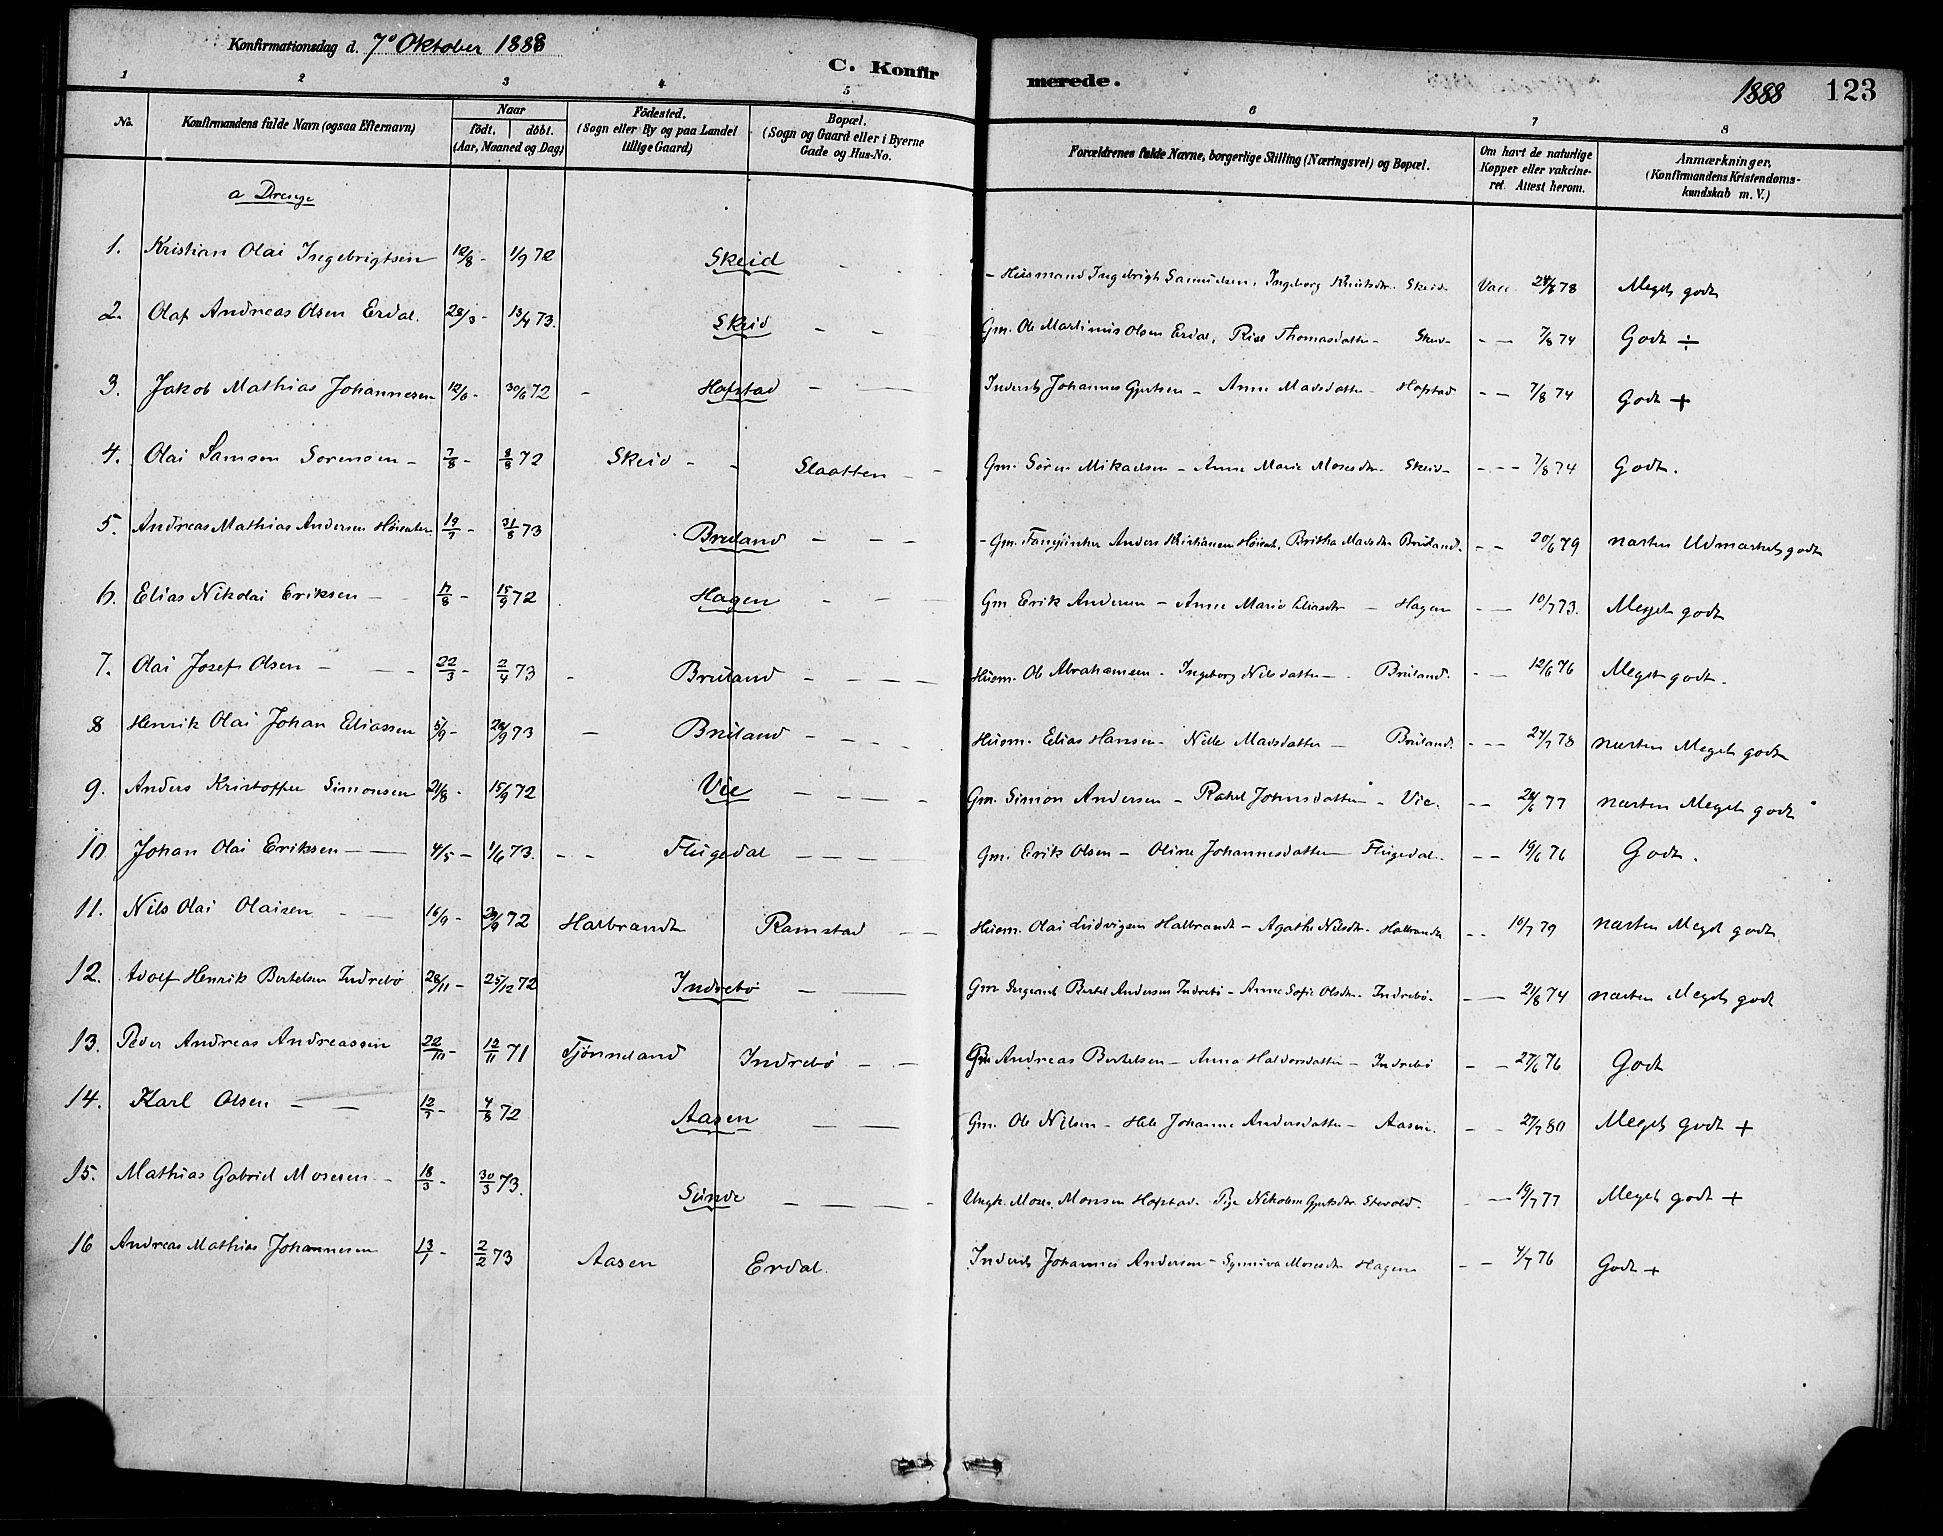 Konfirmationsdag d. 7º Oktober 1888
C. Konfirmerede.
1888 123
1 2 3 4 5 6 7 8
No. Konfirmandens fulde Navn (ogsaa Efternavn) Naar födt. döbt. (Aar, Maaned og Dag) Födested. (Sogn eller By og paa Landet tillige Gaard) Bopæl. (Sogn og Gaard eller i Byerne Gade og Hus-No. Forældrenes fulde Navne, borgerlige Stilling (Næringsvei) og Bopæl. Om havt de naturlige Kopper eller vakcineret. Attest herom. Anmærkninger, (Konfirmandens Kristendomskundskab m. V.)
a Drenge
1. Kristian Olai Ingebrigtsen 12/8 - 1/9 72 Skeid - Husmand Ingebrigt Samuelsen, Ingeborg Knutsdtr. Skeid Vacc. 78 Meget godt
2. Olaf Andreas Olsen Erdal. 28/3 - 13/4 73. Skeid - - Gm. Ole Martinus Olsen Erdal, Thomasdatter - Skeid - - 7/8 74 Godt ÷
3. Jakob Mathias Johannesen 12/6 - 30/6 72 - Hofstad - - Inderst Johannes Gjertsen - Anne Madsdatter - Hofstad - - 7/8 74 Godt +
4. Olai Samson Sorensen - 7/8 - 8/8 72 Skeid - - Slaatten - Gm. Søren Mikaelsen - Anne Marie Mosesdtr. Skeid - - - 7/8 74 Godt.
5. Andreas Mathias Andersen 19/7 - 31/8 73 Bruland - - - - Gm. Anders Kristiansen Britha Madsdtr Bruland. - - 20/6 79 næsten Udmærket godt
6. Elias Nikolai Eriksen - 17/8 - 15/9 72 Hagen - - Gm Erik Andersen - Anne Marie Eliasdtr - Hagen - - 10/7 73. Meget godt
7. Olai Josef Olsen - - - 22/3 - 2/4 73 - Bruland - - - - Husm. Ole Abrahamsen - Ingeborg Nilsdatter - Bruland. - - 12/6 76 Meget godt.
8 Henrik Olai Johan Eliassen 5/9 - 28/9 73 - Bruland - - - - Husm. Elias Hansen - Nille Madsdatter - Bruland. - - - 24/7 78 næsten Meget godt
9. Anders Kristoffer Simonsen 21/8 - 15/9 72 Vie - - - - Gm. Simon Andersen - Rakel Johnsdatter - Vie. - - 77 næsten Meget godt
10 Johan Olai Eriksen - - 4/5 - 1/6 73. - - Flugedal - - - - Gm. Erik Olsen - Oline Johannesdatter Flugedal. - - 19/6 76 Godt.
11. Nils Olai Olaisen - - 16/9 - 29/9 72 Halbrandt Ramstad - - Husm. Olai Ludvigsen Halbrandt - Agathe Nilsdtr. Halbrandt - - 10/7 79 næsten Meget godt
12. Adolf Henrik Bertelsen Indrebö 28/11 - 25/12 72 Indrebö - - Gm Sergeant Bertel Andersen Indrebö - Anne Sofie Olsdtr. Indrebö. - - 21/8 74 næsten Meget godt
13. Peder Andreas Andreassen 22/10 - 12/11 71 Tjönneland Indrebö - - Gm Andreas Bertelsen - Anna Haldorsdatter - Indrebö - - 27/6 76 Godt
14. Karl Olsen - - 12/7 - 4/8 72 Aasen - - Gm. Ole Nilsen - Johanne Andersdatter - Aasen. - - 27/7 80 Meget godt +
15. Mathias Gabriel Mosesen - 18/3 - 30/3 73. Sunde - - - - Ungk. Moses Monsen Hofstad. Pige Nikoline Gjertsdtr. - - 19/7 77 Meget godt +
16 Andreas Mathias Johannesen 13/1 - 2/2 73 Aasen Erdal. Inderst Johannes Andersen - Synniva Mosesdtr Hagen - - 4/7 76 Godt +